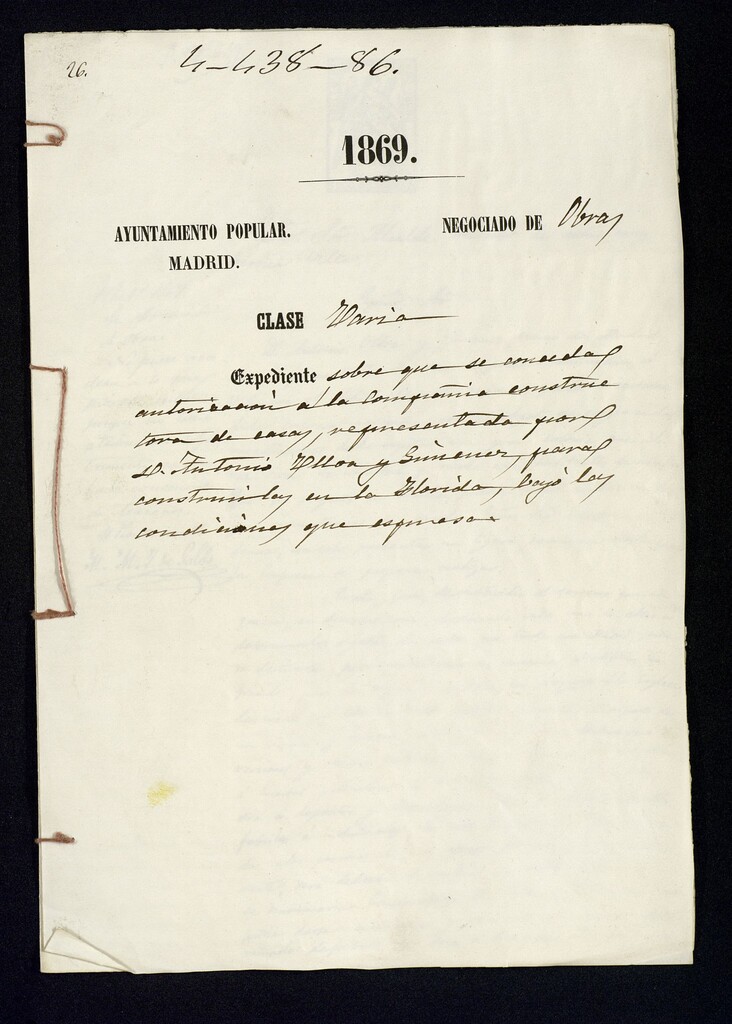 26.
4-438-86.
1869.
AYUNTAMIENTO POPULAR.
MADRID.
NEGOCIADO DE Obras
CLASE Varia
Expediente sobre que se conceda
autorizacion a la Compañia construc
tora de casas, representada por
D. Antonio Ulloa y Gimenez, para
construirlas en la Florida, bajo las
condiciones que espresa